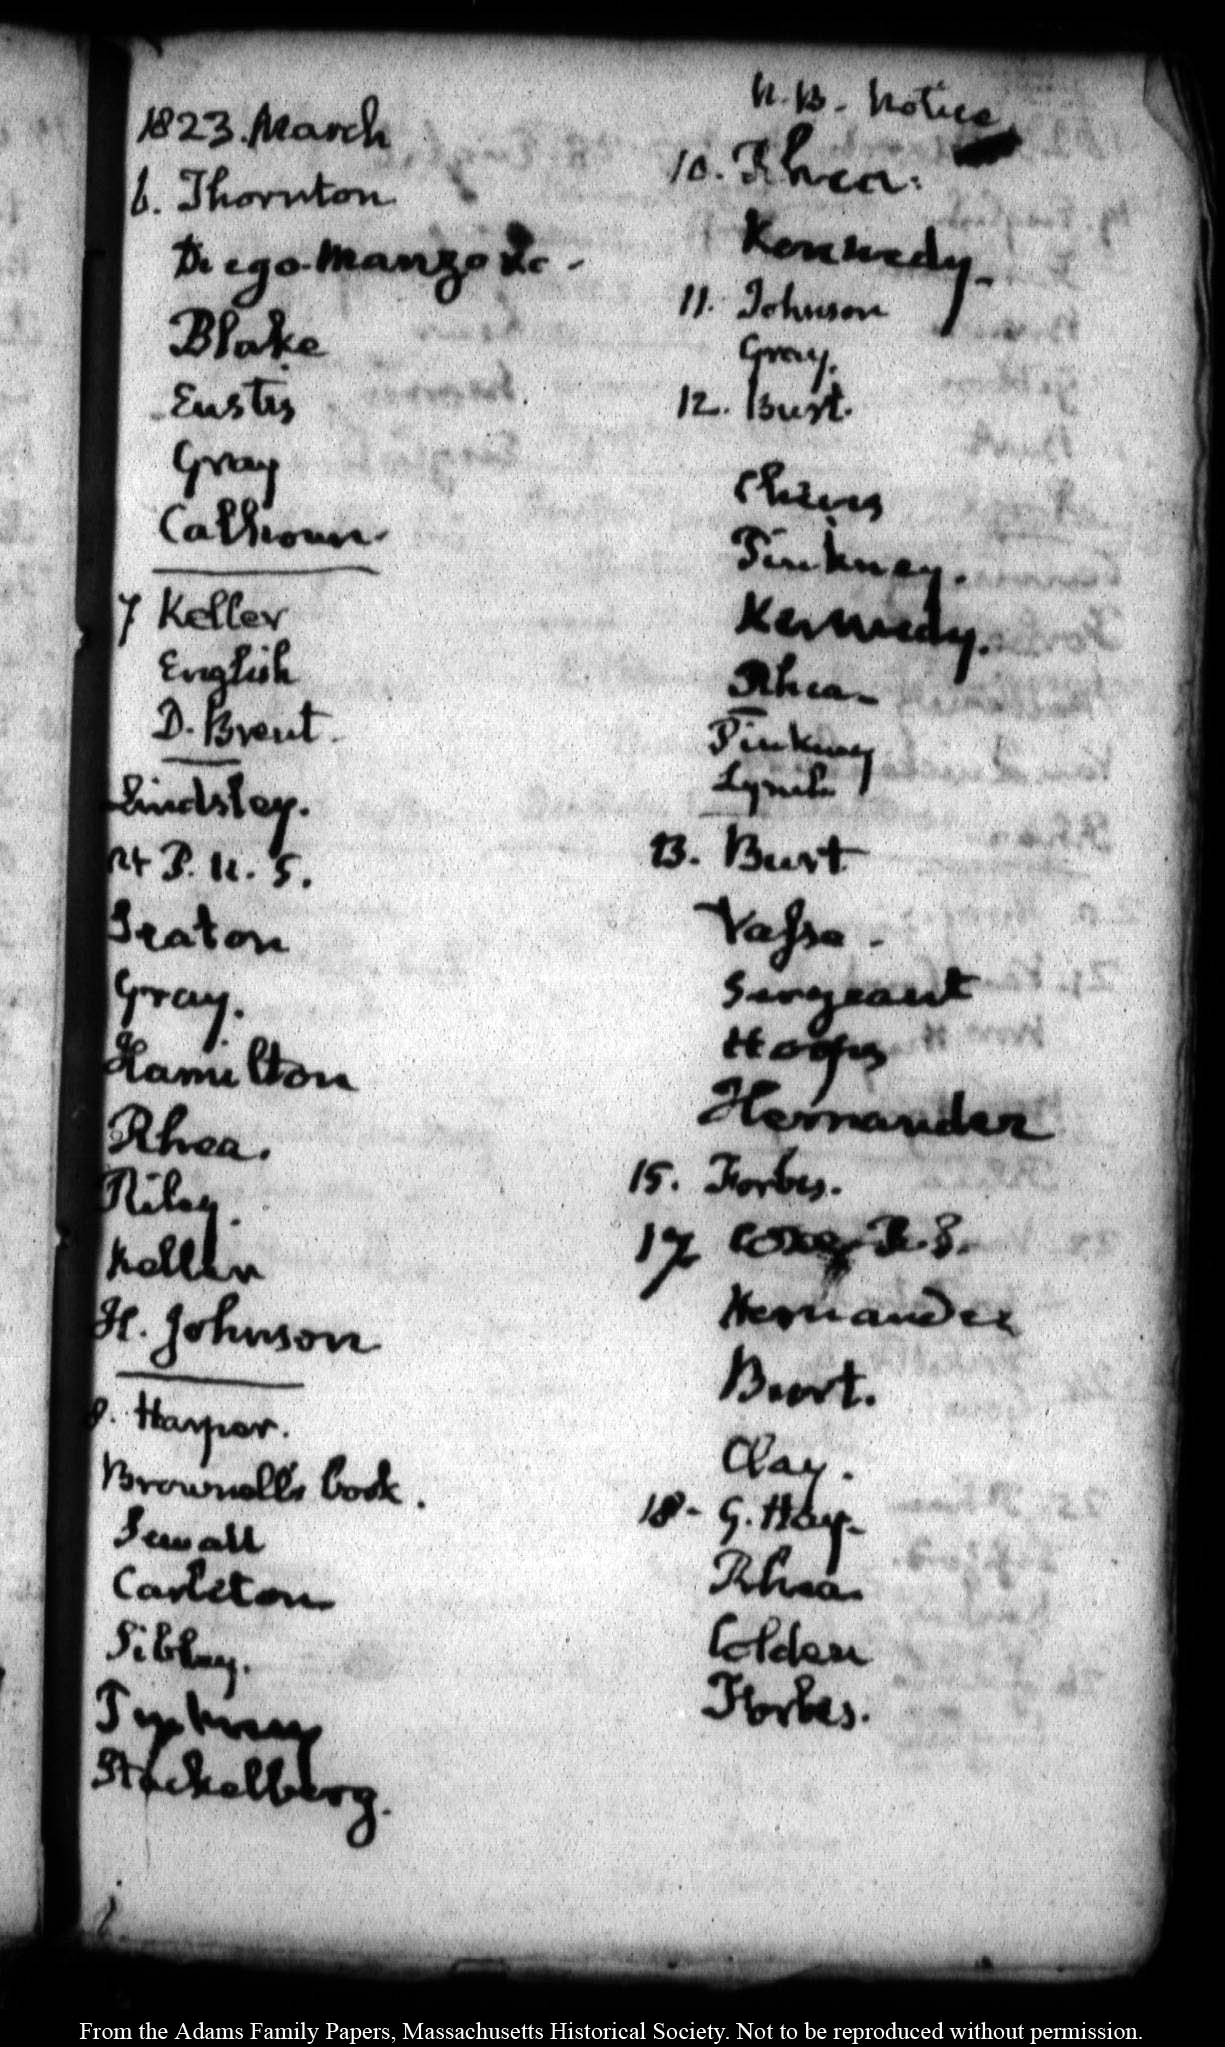 1823. March
6. Thornton
Diego Manzo &c -
Blake
Eustis
Gray
Calhoun.
7 Keller
English
D. Brent.
Lindsley.
at P. U. S.
Seaton
Gray.
Hamilton
Rhea.
Riley.
Kellen
H. Johnson
8. Harper.
Brownell's book.
Sewall
Carleton.
Sibley.
Stackelberg.
N.B. Notice
10. Rhea.
Kennedy.
11. Johnson
Gray.
12. Burt.
Cheves
Pinkney.
Kennedy.
Rhea.
Pinkney
Lynch
13. Burt
Vasse -
Sergeant
Hoops
Hernandez
15. Forbes.
17 Coxe R. S.
Hernandez
Burt.
Clay.
18 - G. Hay.
Rhea.
Colden
Forbes.
From the Adams Family Papers, Massachusetts Historical Society. Not to be reproduced without permission.